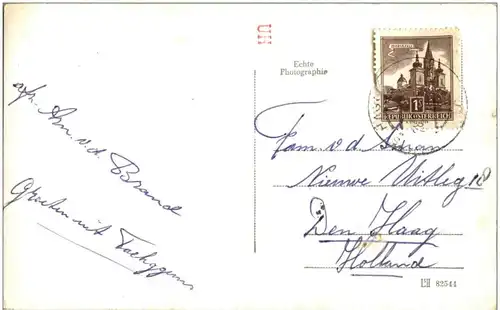 afz. Am. v. d. Brand
Groeten uit
Echte
Photographie
MARIAZELL
1S
REPUBLIK ÖSTERREICH
Fam v d
Nieuwe Uitleg 18
Den Haag
Holland
82544